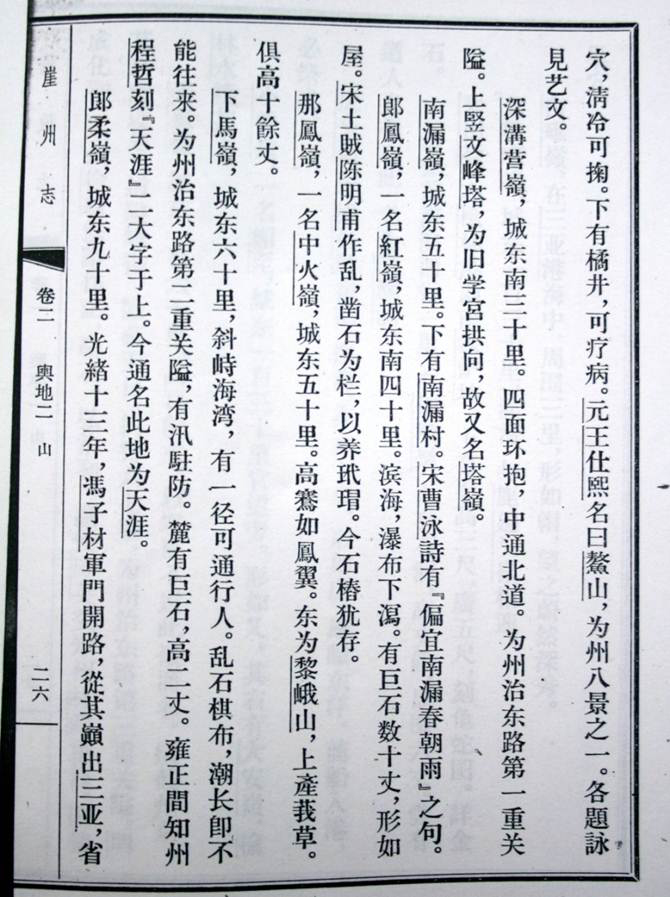 穴，清冷可掬。下有橘井，可疗病。元王仕熙名曰鰲山，为州八景之一。各題詠
見艺文。
深溝营嶺，城东南三十里。四面环抱，中通北道。为州治东路第一重关
隘。上竪文峰塔，为旧学宮拱向，故又名塔嶺。
南漏嶺，城东五十里。下有南漏村。宋曹泳詩有『偏宜南漏春朝雨』之句。
郎鳳嶺，一名紅嶺，城东南四十里。滨海，瀑布下瀉。有巨石数十丈，形如
屋。宋土賊陈明甫作乱，凿石为栏，以养玳瑁。今石樁犹存。
那鳳嶺，一名中火嶺，城东五十里。高骞如鳳翼。东为黎峨山，上產莪草。
俱高十餘丈。
下馬嶺，城东六十里，斜峙海湾，有一径可通行人。乱石棋布，潮长卽不
能往来。为州治东路第二重关隘，有汛駐防。麓有巨石，高二丈。雍正間知州
程哲刻『天涯』二大字于上。今通名此地为天涯。
郎柔嶺，城东九十里。光緒十三年，馮子材軍門開路，從其巔出三亚，省
崖州志
卷二
輿地二
山
二六